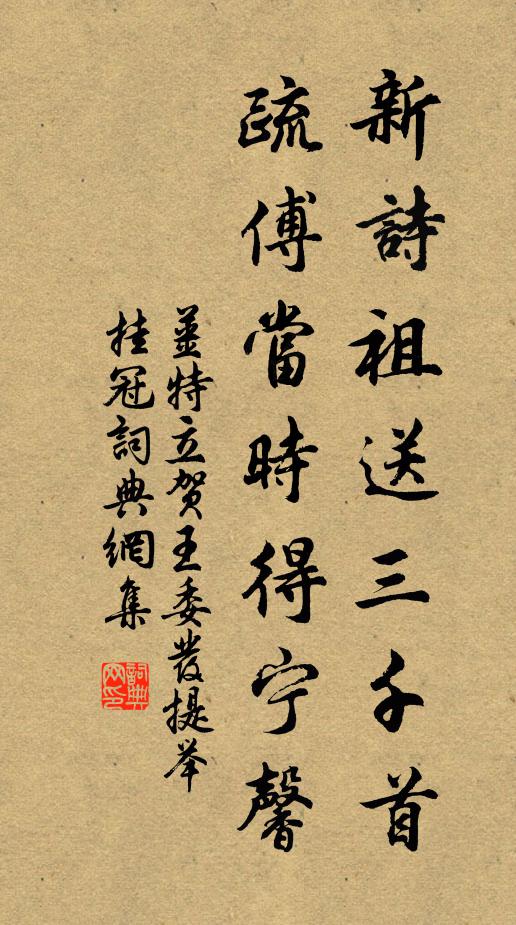 新詩祖送三千首
疏傅當時得宁馨
薑特立贺王委發提举
挂冠詞典網集
詞典网印